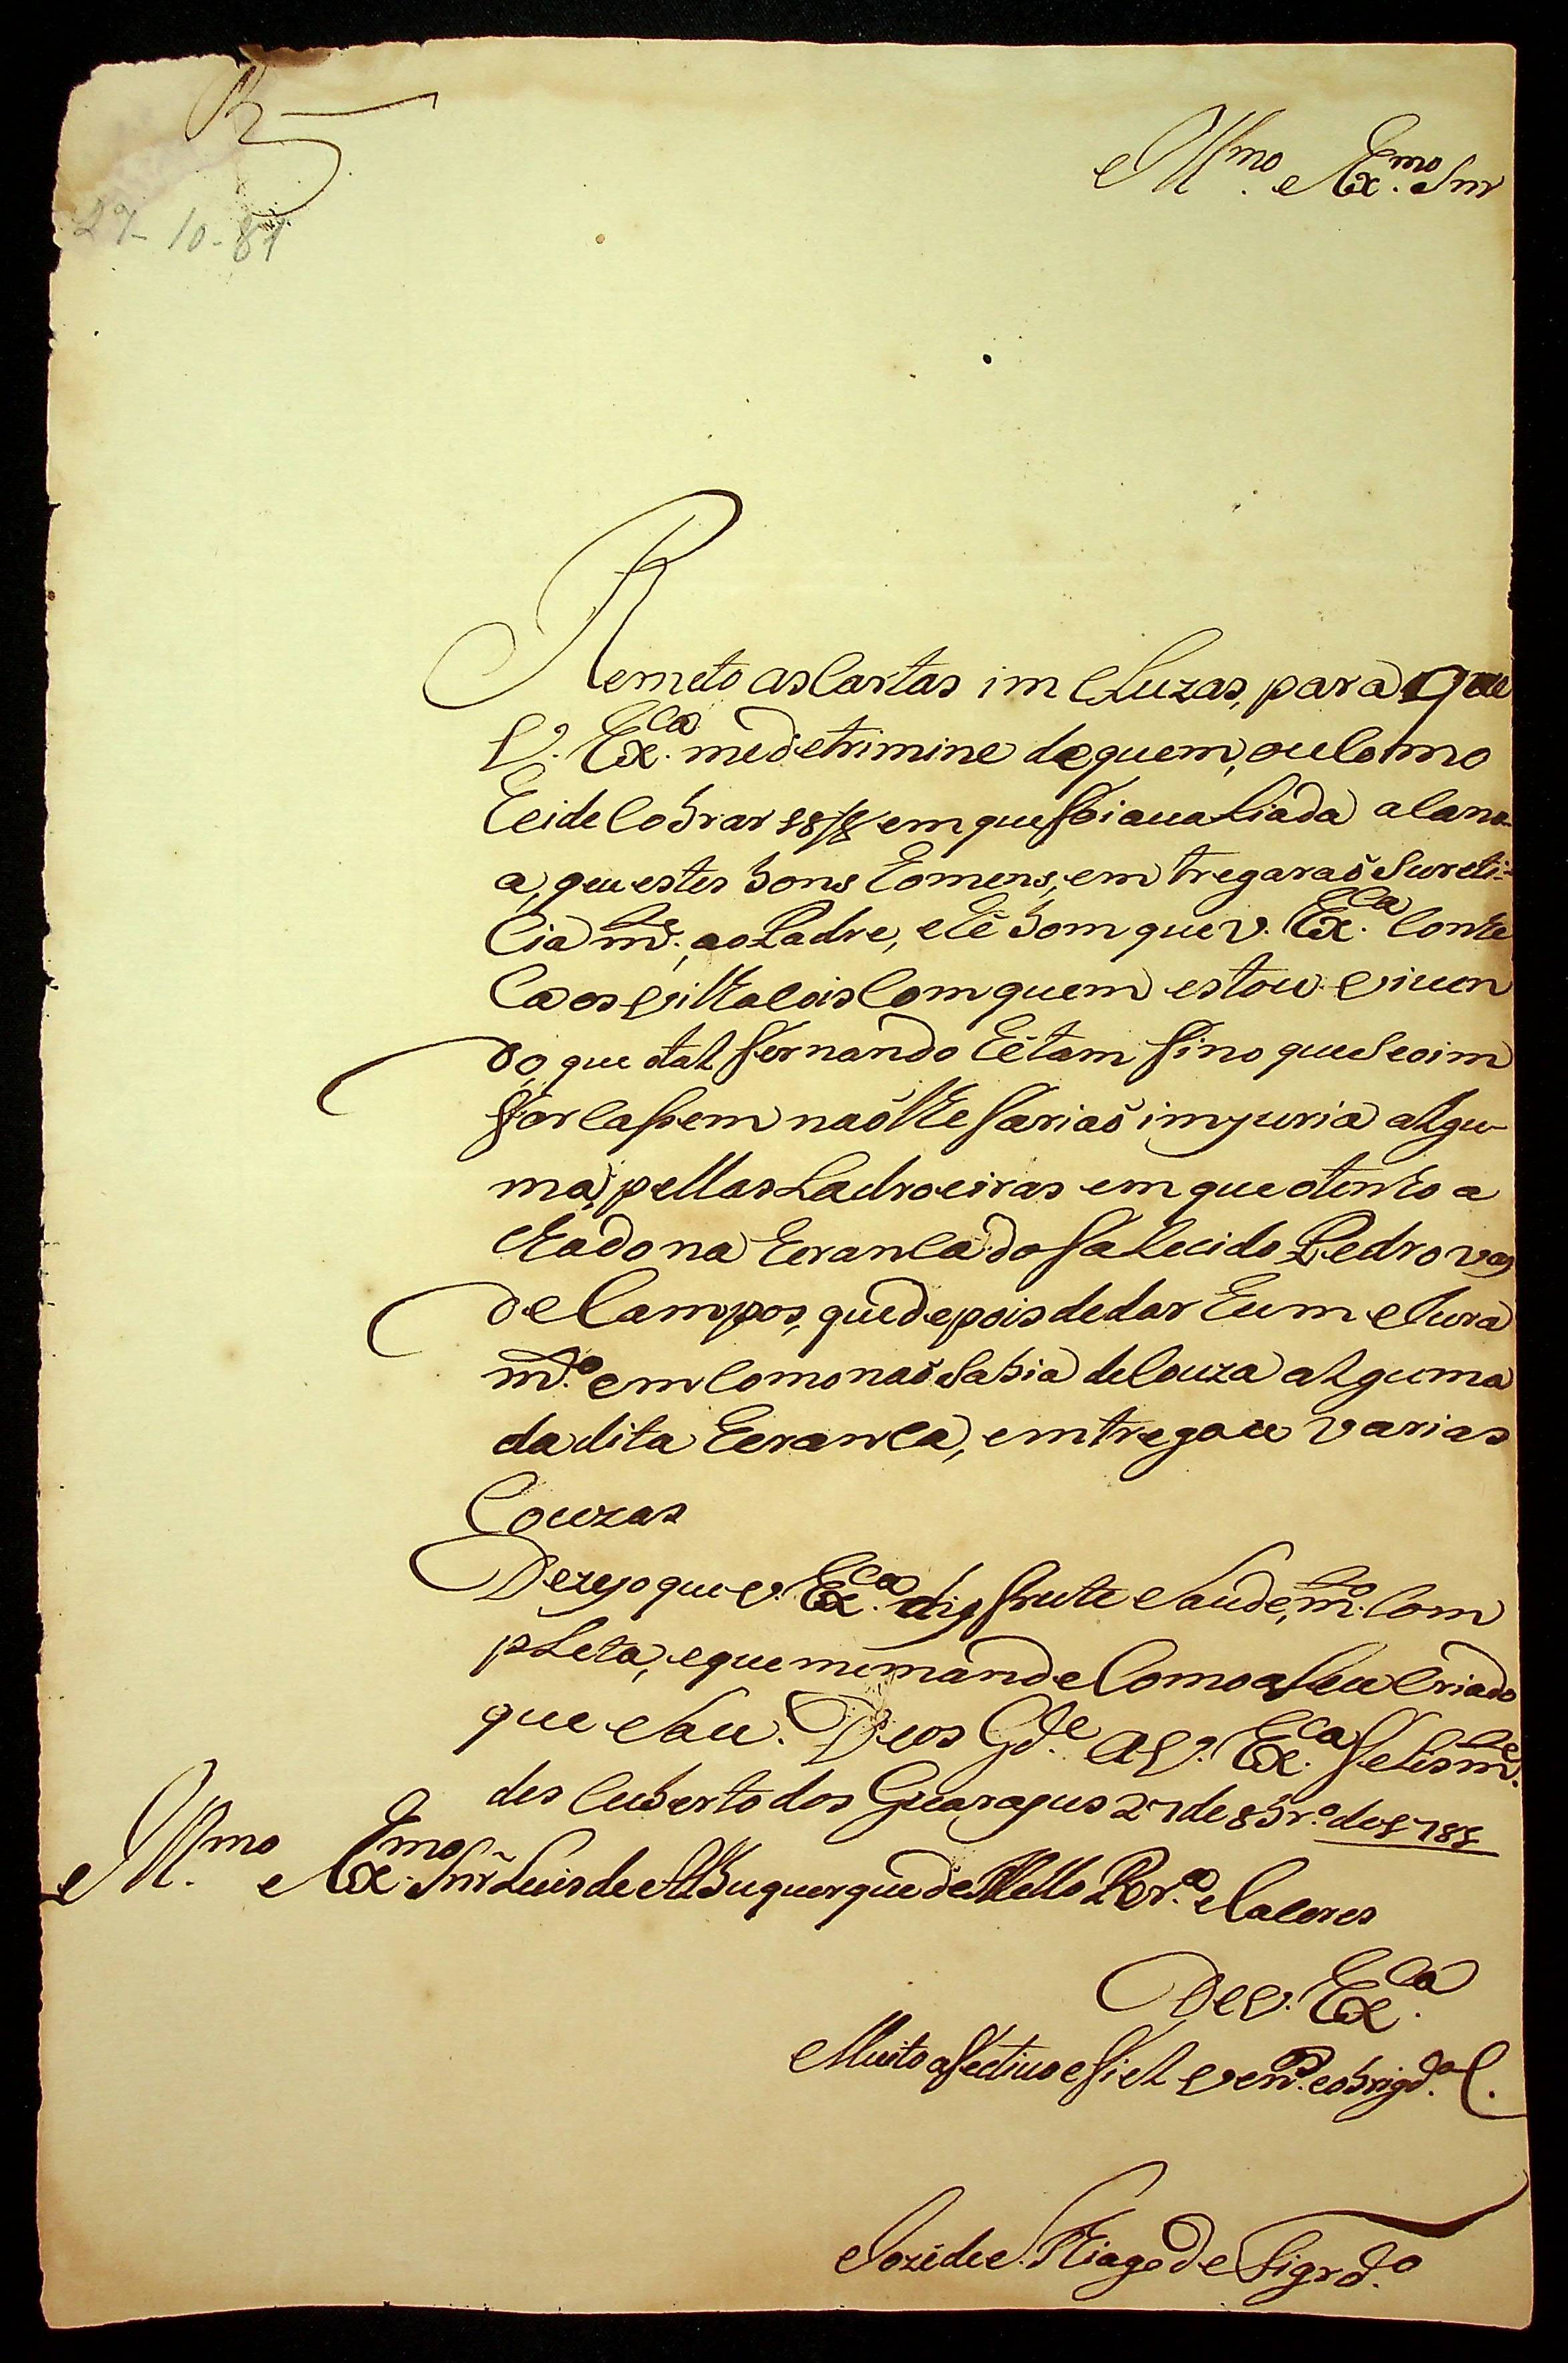 27-10-81
Ill.mo e Ex.mo Snr
Remeto as Cartas imcluzas, para que
V. Ex.ca me detrimine de quem, ou como
hei de cobrar 18/8 em que foi avaliada a cano-
a, que estes bons homens, emtregaraõ Sureti-
cia m.te, ao Padre, e hé bom que V. Ex.ca conhe
ca os vilhacois com quem estou vivun
do, que o tal Fernando hé tam fino que se o im
forcassem naõ lhe fariaõ imjuria algu-
ma, pellas Ladroeiras em que o tenho a
chado na heranca do falecido Pedro vas
de Campos, que depois de dar hum Jura
m.to em como naõ Sabia de Couza alguma
da dita heranca, emtregou varias
Couzas
Dezejo que V. Ex.ca disfrute Saude m.to com
pleta, e que me mande como a seu criado
que Sou. Deos G.de a V. Ex.ca felis m.te
descuberto dos Guarajus 27 de 8br.o de 1781
Ill.mo e Ex.mo Snr Luis de Albuquerque de Mello Per.a e Caceres
De V. Ex.ca
Muito afectivo e fiel Ven.or e obrig.do C.
Jozé de S.Thiago de Figr.do